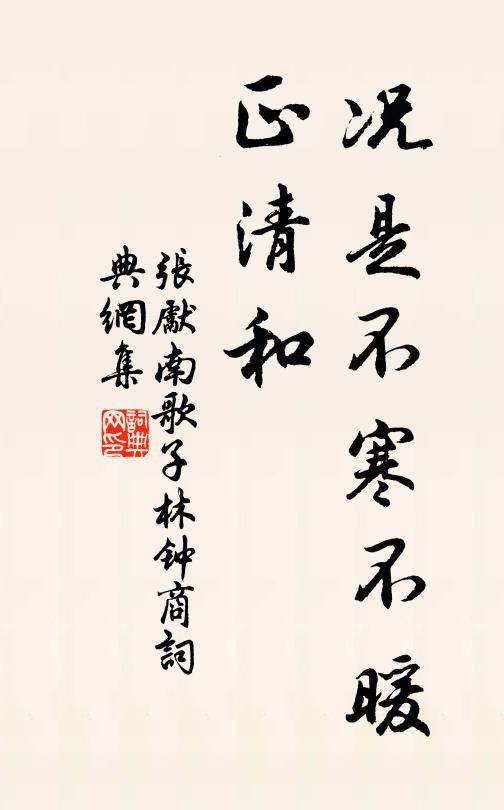 况是不寒不暖
正清和
張獻南歌子林钟商詞
典網集
詞典网印